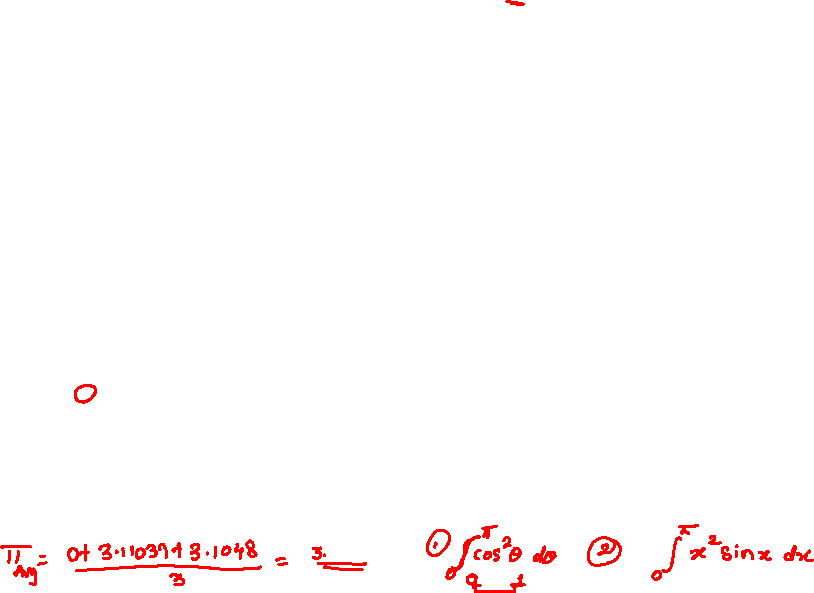 0
π_Avg = (0 + 3.11037 + 3.1048) / 3 = 3.
① ∫₀^π cos²θ dθ
② ∫₀^π x² sinx dx